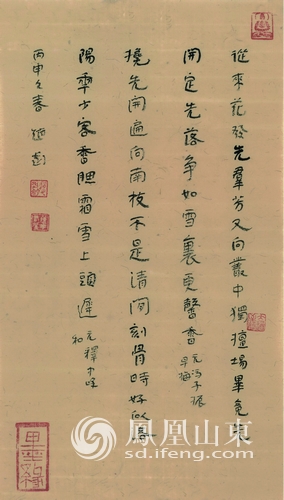 從來花發先羣芳又向叢中獨擅場畢竟先
開定先落爭如雪裏更馨香 元冯子振 早梅
先開遍向南枝不是清閒刻骨時好似高
陽客霜雪上頭遲 元釋中峰 和
丙申之春
凤凰山东
sd.ifeng.com